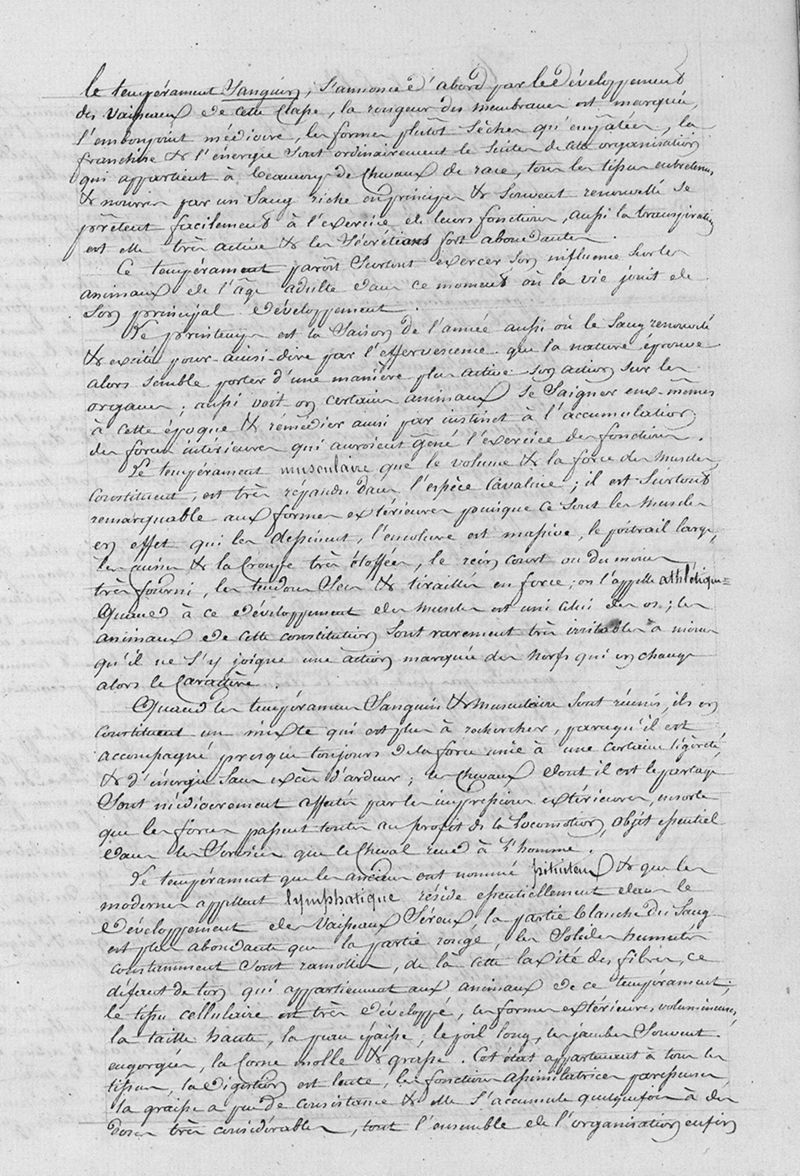 le tempérament Sanguin, s'annonce d'abord par le développement
des vaisseaux de cette classe, la rougeur des membranes est marquée,
l'embonpoint médiocre, les formes plutot sèches qu'empâtées, la
franchise & l'énergie sont ordinairement le suites de cette organisation
qui appartient à beaucoup de chevaux de race, tous les tissus entretenus
& nourris par un sang riche en principes & souvent renouvellé se
prêtent facilement à l'exercice de leurs fonctions, aussi la transpiration
est elle très active & les sécrétions fort abondantes.
Ce tempérament paroît surtout exercer son influence sur les
animaux de l'age adulte dans ce moment où la vie jouit de
son principal développement.
Le printemps est la saison de l'année aussi où le sang renouvelé
& excité pour-ainsi-dire par l'effervescence que la nature éprouve
alors semble porter d'une manière plus active son action sur les
organes ; aussi voit on certains animaux se saigner eux-mêmes
à cette époque & remédier ainsi par instinct à l'accumulation
des forces intérieures qui auroient gêné l'exercice des fonctions.
Le tempérament musculaire que le volume & la force des muscles
constituent, est très répandu dans l'espèce cavaline ; il est surtout
remarquable aux formes extérieures puisque ce sont les muscles
en effet qui les dessinent, l'encolure est massive, le poitrail large,
les cuisses & la croupe très étoffées, le rein court ou du moins
très fourni, les tendons secs & tiraillés en force ; on l'appelle athlétique=
Quand à ce développement des muscles est uni celui des os ; les
animaux de cette constitution sont rarement très irritables a moins
qu'il ne s'y joigne une action marquée des nerfs qui en change
alors le caractère.
Quand les tempéramens Sanguin & Musculaire sont réunis, ils en
constituent un mixte qui est plus à rechercher, parcequ'il est
accompagné presque toujours de la force unie à une certaine légèreté
& d'énergie sans excès d'ardeur ; les chevaux dont il est le partage
sont médiocrement affectés par les impressions extérieures, ensorte
que les forces passent toutes au profit de la locomotion, objet essentiel
dans les services que le cheval rend à l'homme.
Le tempérament que les anciens ont nommé pituiteux & que les
modernes appellent lymphatique réside essentiellement dans le
développement des vaisseaux séreux, la partie blanche du sang
est plus abondante que la partie rouge, les solides humectés
constamment sont ramollis, de là cette laxité des fibres, ce
défaut de ton qui appartiennent aux animaux de ce tempérament ;
le tissu cellulaire est très développé, les formes extérieures volumineuses,
la taille haute, la peau épaisse, le poil long, les jambes souvent
engorgées, la corne molle & grasse. Cet état appartenant à tous les
tissus, la digestion est lente, les fonctions assimilatrices paresseuses
la graisse a peu de consistance & elle s'accumule quelquefois à des
doses très considérables, tout l'ensemble de l'organisation enfin